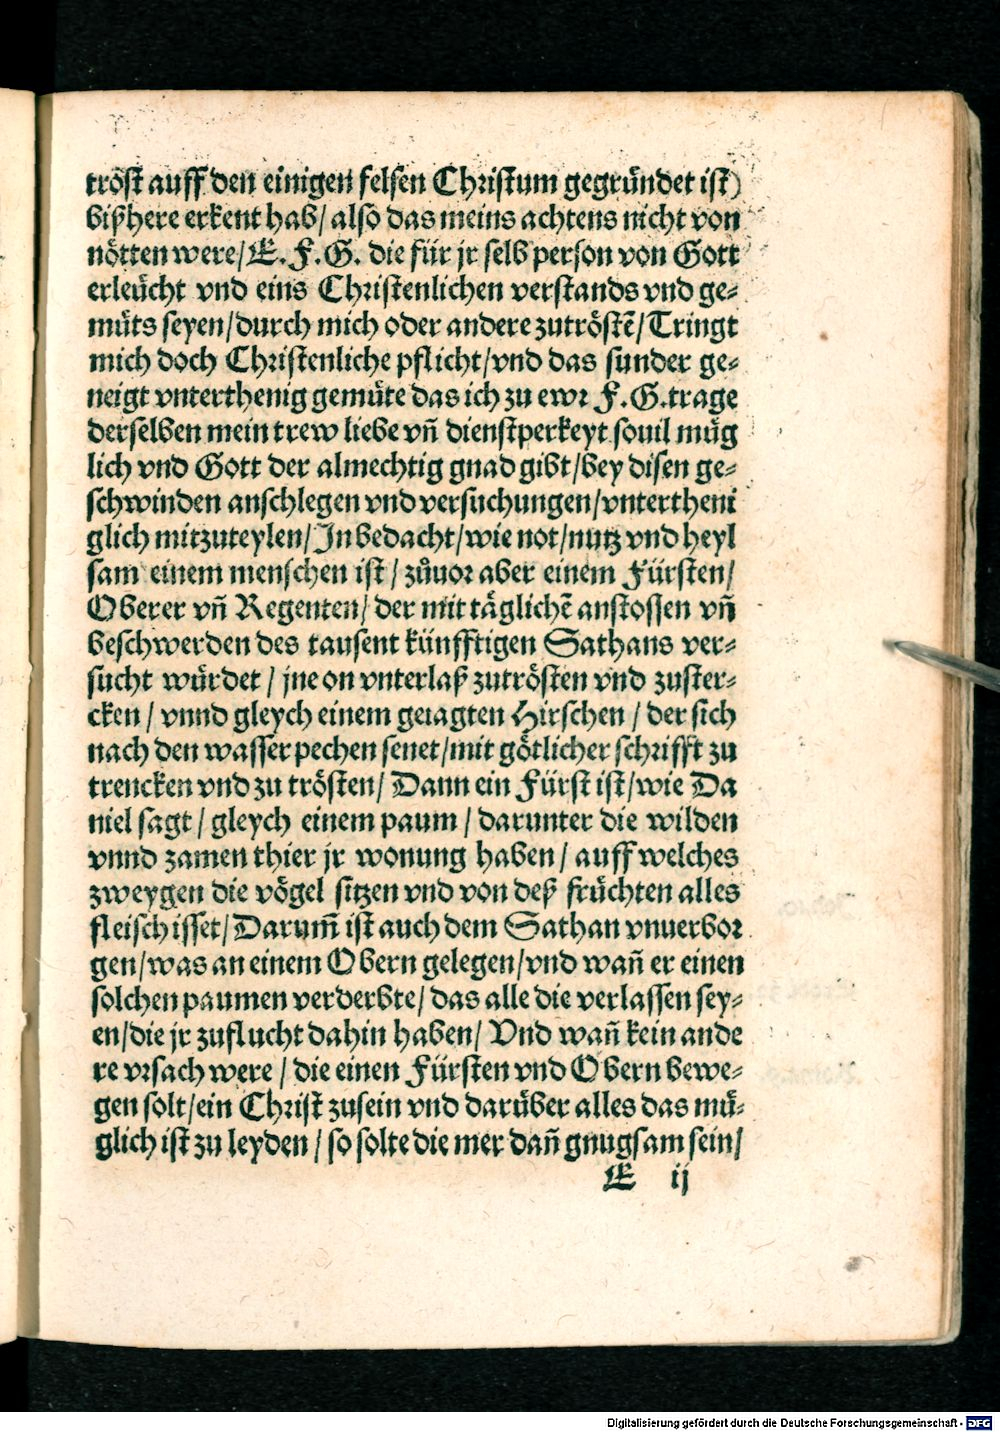 tröst auff den einigen felsen Christum gegründet ist)
bißhere erkent hab/ also das meins achtens nicht von
nötten were/ E. F. G. die für jr selb person von Gott
erleücht vnd eins Christenlichen verstands vnd ge⸗
müts seyen/ durch mich oder andere zutröstē/ Tringt
mich doch Christenliche pflicht/ vnd das sunder ge⸗
neigt vnterthenig gemüte das ich zu ewr F. G. trage
derselben mein trew liebe vñ dienstperkeyt souil müg
lich vnd Gott der almechtig gnad gibt/ bey disen ge⸗
schwinden anschlegen vnd versuchungen/ vntertheni
glich mitzuteylen/ In bedacht/ wie not/ nutz vnd heyl
sam einem menschen ist/ zůuor aber einem Fürsten/
Oberer vñ Regenten/ der mit täglichē anstossen vñ
beschwerden des tausent künfftigen Sathans ver⸗
sucht würdet/ jne on vnterlaß zutrösten vnd zuster⸗
cken/ vnnd gleych einem geiagten Hirschen/ der sich
nach den wasser pechen senet/ mit götlicher schrifft zu
trencken vnd zu trösten/ Dann ein Fürst ist/ wie Da
niel sagt/ gleych einem paum/ darunter die wilden
vnnd zamen thier jr wonung haben/ auff welches
zweygen die vögel sitzen vnd von deß früchten alles
fleisch isset/ Darum̄ ist auch dem Sathan vnuerbor
gen/ was an einem Obern gelegen/ vnd wañ er einen
solchen paumen verderbte/ das alle die verlassen sey⸗
en/ die jr zuflucht dahin haben/ Vnd wañ kein ande
re vrsach were/ die einen Fürsten vnd Obern bewe⸗
gen solt/ ein Christ zusein vnd darüber alles das mü⸗
glich ist zu leyden/ so solte die mer dañ gnugsam sein/
E ij
Digitalisierung gefördert durch die Deutsche Forschungsgemeinschaft - DFG